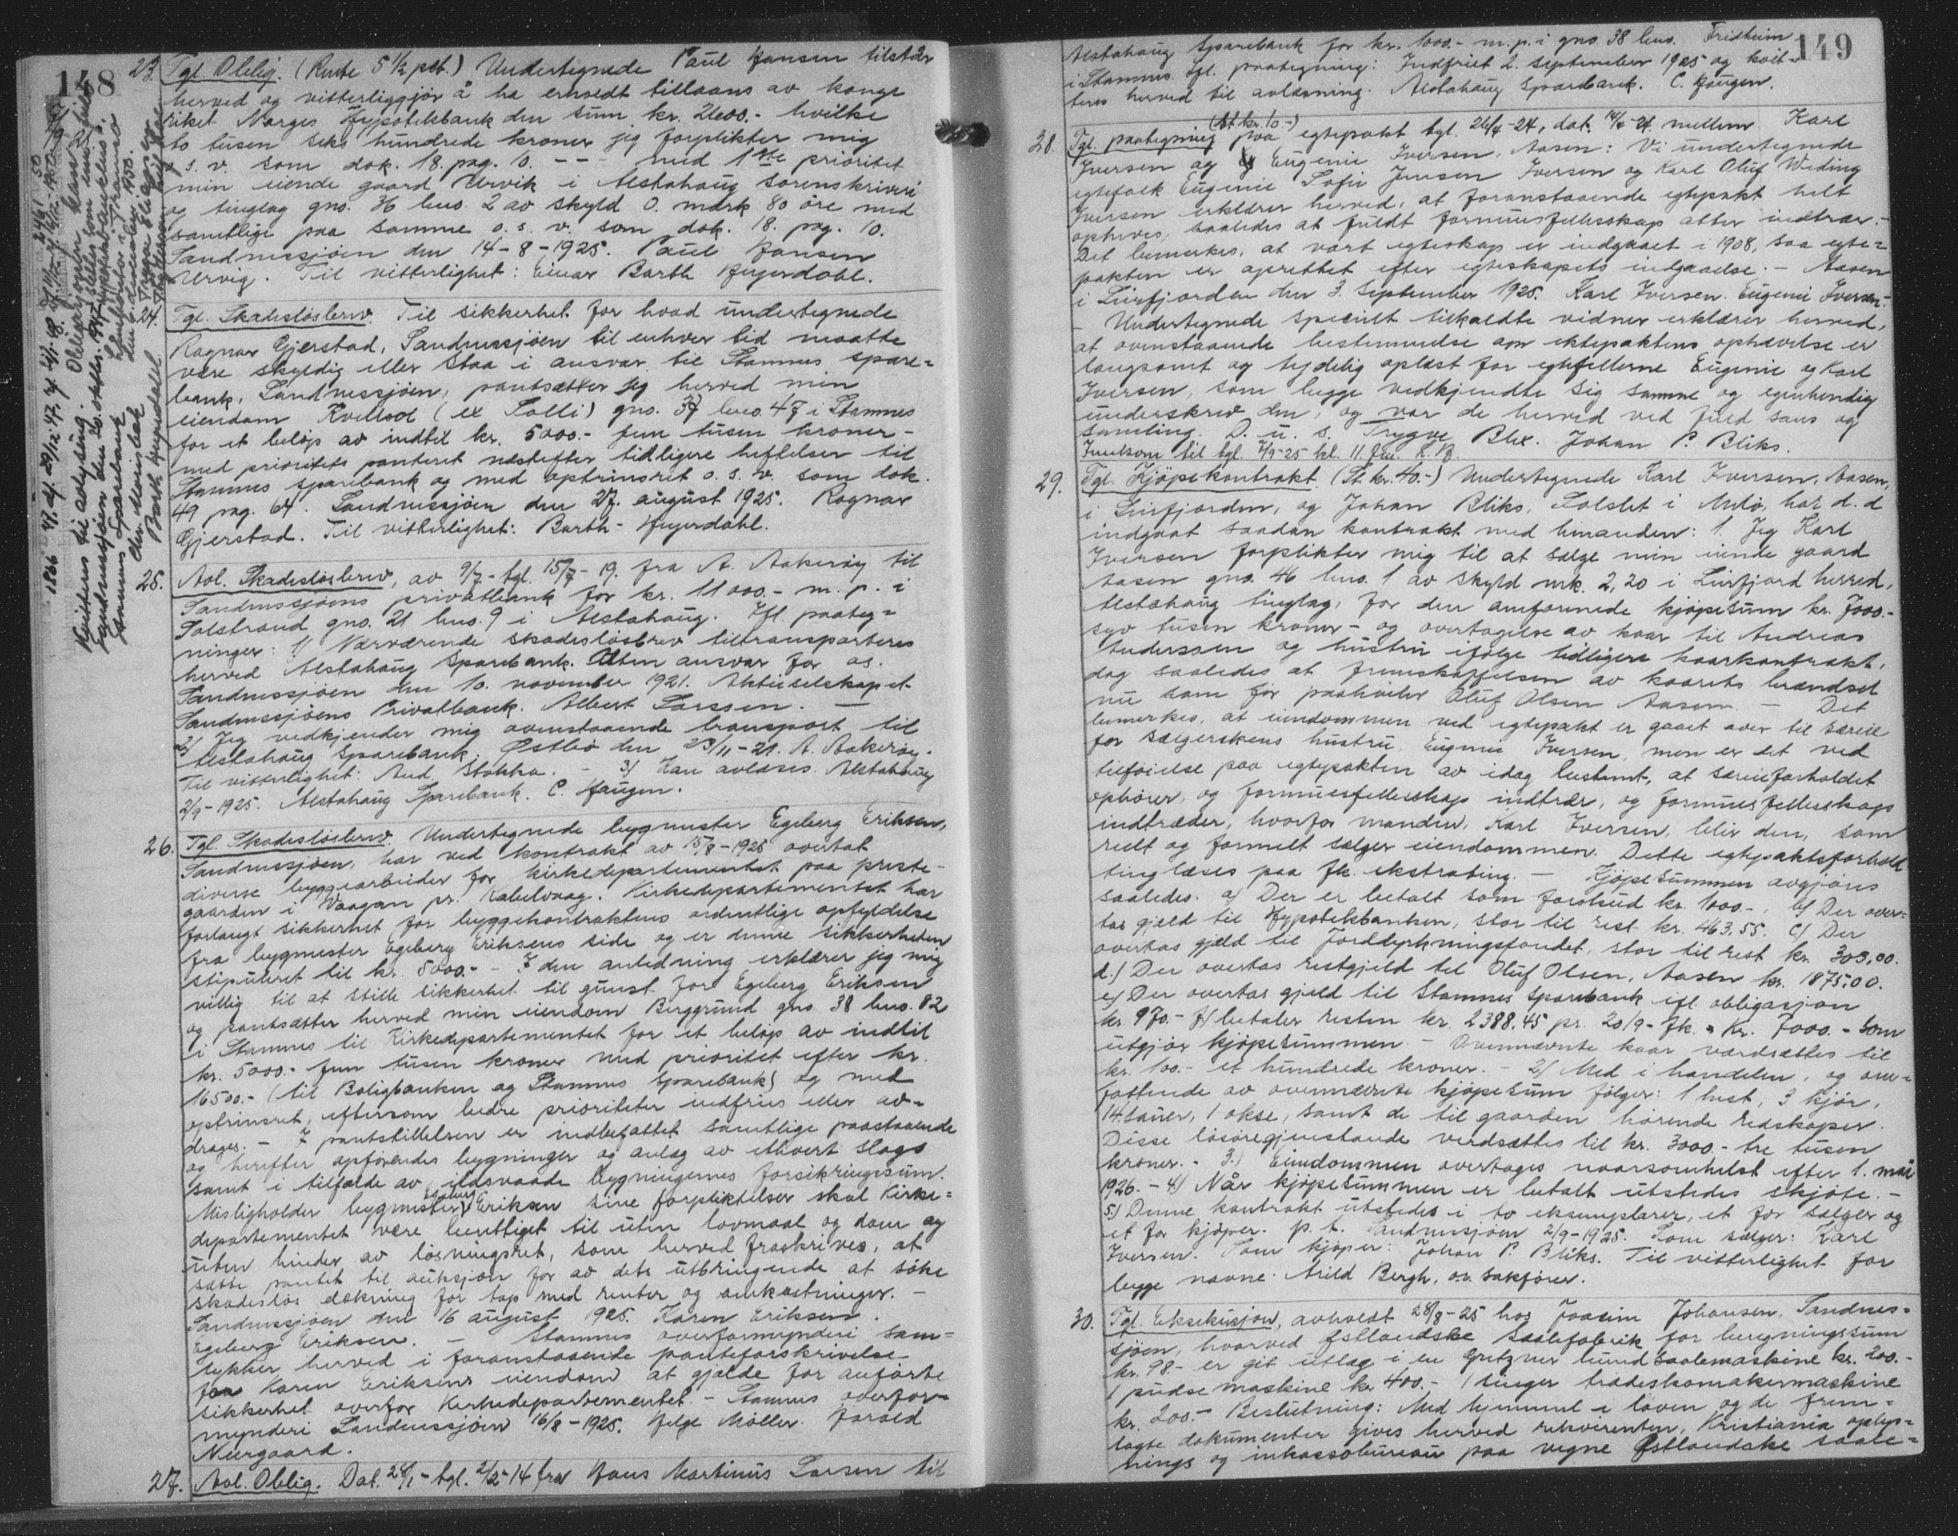 148
23. Tgl. Oblig. (Rente 5 1/2 pct.) Undertegnede Paul Hansen tilstår
herved og vitterliggjør å ha erholdt tillaans av konge
riket Norges Hypotekbank den sum kr. 2600.- hvilke
to tusen seks hundrede kroner jeg forplikter mig
o. s. v. som dok. 18. pag. 10. - - - med 1ste prioritet
min eiende gaard Urvik i Alstahaug sorenskriveri
og tinglag gno. 36 bno. 2 av skyld 0. mark 80 øre med
samtlige paa samme o. s. v. som dok. 18. pag. 10.
Sandnessjøen den 14-8-1925. Paul Hansen
Urvig. Til vitterlighet: Einar Barth Heyerdahl.
24. Tgl. Skadesløsbrev. Til sikkerhet for hvad undertegnede
Ragnar Gjerstad, Sandnessjøen til enhver tid maatte
være skyldig eller staa i ansvar til Stamnes spare=
bank, Sandnessjøen, pantsætter jeg herved min
eiendom Kveldsol (ex Solli) gno. 37 bno. 47 i Stamnes
for et beløp av indtil kr. 5000.- fem tusen kroner-
med prioritets panteret næstefter tidligere heftelser til
Stamnes sparebank og med optrinsret o. s. v. som dok.
49 pag. 64. Sandnessjøen den 27. august 1925. Ragnar
Gjerstad. Til vitterlighet: Barth-Heyerdahl.
25. Avl. Skadesløsbrev, av 9/7- tgl. 15/7-19. fra A. Aakerøy til
Sandnessjøens privatbank for kr. 11000.- m. p. i
Solstrand gno. 21 bno. 9 i Alstahaug. Ifl. paateg=
ninger: 1/ Nærværende skadesløsbrev tiltransporteres
herved Alstahaug Sparebank. Uten ansvar for os.
Sandnessjøen den 10. november 1921. Aktieselskapet
Sandnessjøens Privatbank. Albert Larssen. —
2/ Jeg vedkjender mig ovenstaaende transport til
Alstahaug Sparebank. Østbø den 23/11-21. A. Aakerøy.
Til vitterlighet: And. Stokka. - 3/ Kan avlæses. Alstahaug
2/9-1925. Alstahaug Sparebank. C. Haugen.
26. Tgl. Skadesløsbrev. Undertegnede bygmester Egeberg Eriksen,
Sandnessjøen, har ved kontrakt av 15/8-1925 overtat
diverse byggearbeider for kirkedepartementet paa preste=
gaarden i Vaagan pr. Kabelvaag. Kirkedepartementet har
forlangt sikkerhet for byggekontraktens ordentlige opfyldelse
fra bygmester Egeberg Eriksens side og er denne sikkerheten
stipuleret til kr. 5000.- - I den anledning erklærer jeg mig
villig til at stille sikkerhet til gunst for Egeberg Eriksen
og pantsætter herved min eiendom Berggrund gno 38 bno. 82
i Stamnes til Kirkedepartementet for et beløp av indtil
kr. 5000.- fem tusen kroner med prioritet efter kr.
16500.- (til Boligbanken og Stamnes Sparebank) og med
optrinsret, eftersom bedre prioriteter indfries eller av=
drages. - I pantstillelsen er indbefattet samtlige paastaaende
og herefter opførendes bygninger og anlæg av ethvert slags
samt i tilfælde av ildsvaade bygningernes forsikringssum.
Misligholder bygmester Egeberg Eriksen sine forpliktelser skal Kirke=
departementet være berettiget til uten lovmaal og dom og
uten hinder av løsningsret, som herved fraskrives, at
sætte pantet til auksjon for av dets utbringende at søke
skadesløs dækning for tap med renter og omkostninger. -
Sandnessjøen den 16 august 1925. Karen Eriksen.
Egeberg Eriksen. - Stamnes overformynderi sam=
tykker herved i foranstaaende panteforskrivelse
Karen Eriksens eiendom at gjælde for anførte
sikkerhet overfor Kirkedepartementet. - Stamnes overfor=
mynderi Sandnessjøen 16/8-1925. Helge Möller. Harald
Neergaard.
27. Avl. Oblig. Dat. 28/1- tgl. 2/2-14 fra Hans Martinus Larsen til
149
Alstahaug Sparebank for kr. 1000.- m. p. i gno. 38 bno. Fridheim
i Stamnes. Ifl. paategning: Indfriet 2. september 1925 og kvit=
teres herved til avlæsning. Alstahaug Sparebank. C. Haugen.
(St. kr. 10.-)
28. Tgl. paategning paa egtepakt tgl. 26/4-24, dat. 14/4-24 mellem Karl
Iversen og Eugenie Iversen, Aasen: Vi undertegnede
egtefolk Eugenie Sofie Jensen Iversen og Karl Oluf Weding
Iversen erklærer herved, at foranstaaende egtepakt helt
ophæves, saaledes at fuldt formuesfellesskap atter indtrær. -
Det bemerkes, at vort egteskap er indgaaet i 1908, saa egte=
pakten er oprettet efter egteskapets indgaaelse. - Aasen
i Leirfjorden den 3. September 1925. Karl Iversen. Eugenie Iversen.-
- Undertegnede specielt tilkaldte vidner erklærer herved,
at ovenstaaende bestemmelse om ektepaktens ophævelse er
langsomt og tydelig oplæst for egtefellerne Eugenie og Karl
Iversen, som begge vedkjendte sig samme og egenhendig
underskrev den, og var de herved ved fuld sans og
samling. D. u. s. Trygve Blix. Johan P. Bliks.
Innkom til tgl. 7/9-25 kl. 11 fm. K. B.
29. Tgl. Kjøpekontrakt. (St. kr. 40.-) Undertegnede Karl Iversen, Aasen,
i Leirfjorden, og Johan Bliks, Solslet i Meløy, har d. d
indgaat saadan kontrakt med hinanden: 1. Jeg Karl
Iversen forplikter mig til at sælge min eiende gaard
Aasen gno. 46 bno. 1 av skyld mrk. 2,20 i Leirfjord herred,
Alstahaug tinglag, for den omforenede kjøpesum kr. 7000.-
syv tusen kroner- og overtagelse av kaar til Andreas
Anderssen og hustru ifølge tidligere kaarkontrakt,
dog saaledes at fremskaffelsen av kaarets brændsel
nu som før paahviler Oluf Olsen Aasen. - Det
bemerkes, at eiendommen ved egtepakt er gaaet over til særeie
for sælgerskens hustru, Eugenie Iversen, men er det ved
tilføielse paa egtepakten av idag bestemt, at særeieforholdet
ophører, og formuesfellesskap indtrær, og formuesfellesskap
indtræder, hvorfor manden, Karl Iversen, blir den, som
reelt og formelt sælger eiendommen. Dette egtepaktsforhold
tinglæses paa fk. ekstrating. - Kjøpesummen avgjøres
saaledes: a/ Der er betalt som forskud kr. 1000.-. b/ Der over=
tas gjeld til Hypotekbanken, stor til rest kr. 463.55. c/ Der
overtas gjeld til Jorddyrkningsfondet, stor til rest kr. 303,00.
d./ Der overtas restgjeld til Oluf Olsen, Aasen kr. 1875,00.
e/ Der overtas gjeld til Stamnes Sparebank ifl. obligasjon
kr. 970.- f/ betaler resten kr. 2388.45 pr. 20/9- fk. = kr. 7000.- som
utgjør kjøpesummen. - Ovennævnte kaar værdsættes til
kr. 100.- et hundrede kroner. - 2/ Med i handelen, og om=
fattende av ovennævnte kjøpesum følger: 1 hest, 3 kjør,
14 sauer, 1 okse, samt de til gaarden hørende redskaper.
Disse løsøregjenstande verdsættes til kr. 3000.- tre tusen
kroner. - 3./ Eiendommen overtages naarsomhelst efter 1. mai
1926. - 4/ Når kjøpesummen er betalt utstedes skjøte. -
5./ Denne kontrakt utstedes i to eksemplarer, et for sælger og
et for kjøper. p. t. Sandnessjøen 2/9-1925. Som sælger: Karl
Iversen. Som kjøper: Johan P. Bliks. Til vitterlighet for
begge navne: Arild Bergh, o.r. sakfører.
30. Tgl. Eksekusjon, avholdt 28/8-25 hos Joasim Johansen, Sandnes=
sjøen, hvorved Østlandske Saalefabrik for beregningssum
kr. 98.- er git utlæg i en Gritzner lundsaalemaskine kr. 200.-
1 pudsemaskine kr 400.- 1 Singer traadeskomakermaskine
kr. 200.- Beslutning: Med hjemmel i loven og de frem=
lagte dokumenter gives herved rekvirenten, Kristiania oplys=
nings og inkassobureau paa vegne Østlandske saale=